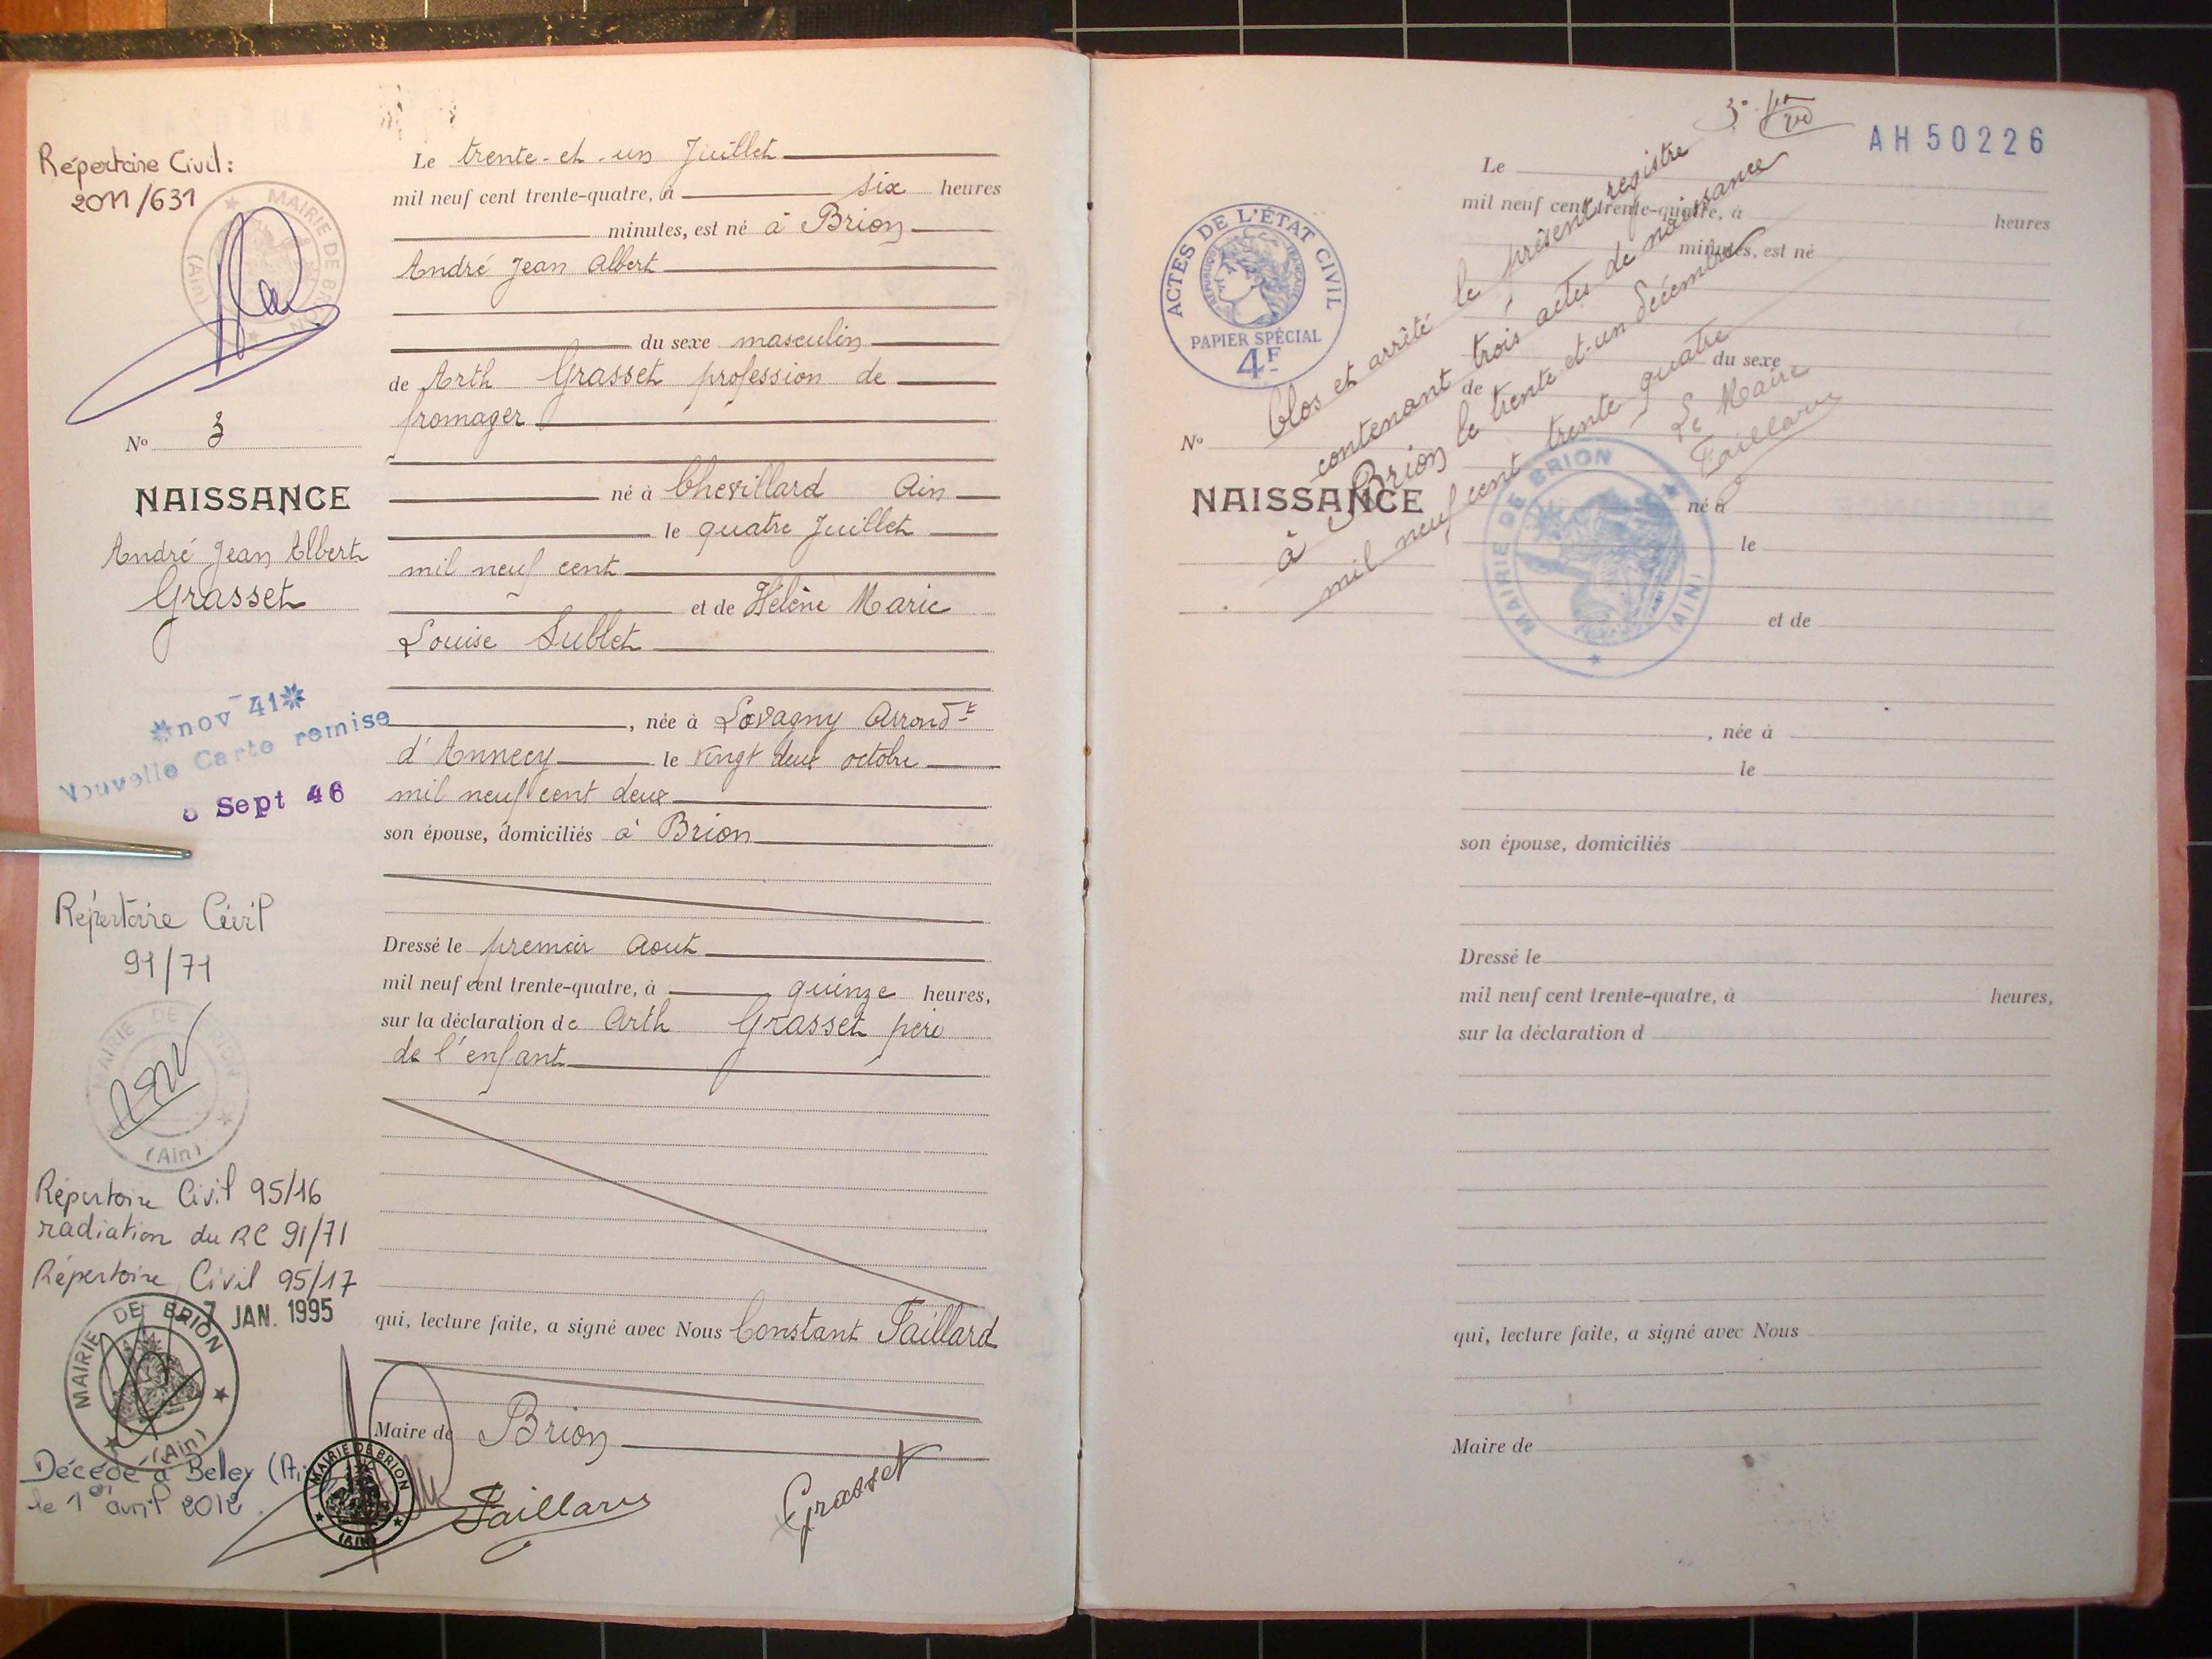 Répertoire Civil:
2011/631
MAIRIE DE BRION
(Ain)
Nº 3
NAISSANCE
André Jean Albert
Grasset
*nov 41*
Nouvelle Carte remise
Sept 46
Répertoire Civil
91/71
MAIRIE DE BRION
(Ain)
Répertoire Civil 95/16
radiation du RC 91/71
Répertoire Civil 95/17
7 JAN. 1995
MAIRIE DE BRION
(Ain)
Décédé à Belley (Ai
le 1er avril 2012.
Le trente-et-un Juillet
mil neuf cent trente-quatre, à six heures
minutes, est né à Brion
André Jean Albert
du sexe masculin
de Arth Grasset profession de
fromager
né à Chevillard Ain
le quatre Juillet
mil neuf cent
et de Hélène Marie
Louise Sublet
, née à Lovagny Arrondt
d'Annecy le vingt deux octobre
mil neuf cent deux
son épouse, domiciliés à Brion
Dressé le premier Aout
mil neuf cent trente-quatre, à quinze heures,
sur la déclaration de Arth Grasset père
de l'enfant
qui, lecture faite, a signé avec Nous Constant Taillard
Maire de Brion
MAIRIE DE BRION
(AIN)
Taillard
Grasset
AH50226
ACTES DE L'ÉTAT CIVIL
RÉPUBLIQUE FRANÇAISE
PAPIER SPÉCIAL
4F
Clos et arrêté le présent registre
contenant trois actes de naissance
à Brion le trente et-un décembre
mil neuf cent trente quatre
Le Maire
Taillard
MAIRIE DE BRION
(AIN)
Le
mil neuf cent trente-quatre, à heures
minutes, est né
du sexe
de
Nº
NAISSANCE
né à
le
et de
, née à
le
son épouse, domiciliés
Dressé le
mil neuf cent trente-quatre, à heures,
sur la déclaration d
qui, lecture faite, a signé avec Nous
Maire de